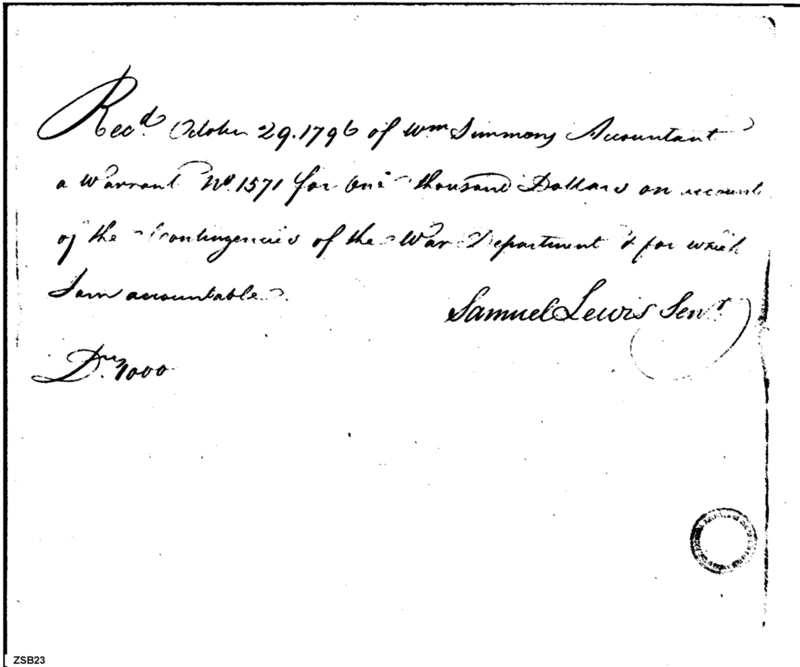 Recd. October 29. 1796 of Wm Simmons Accountant
a Warrant No. 1571 for One thousand Dollars on account
of the Contingencies of the War Department & for which
I am accountable.
Samuel Lewis Senr.
Drs. 1000
ZSB23